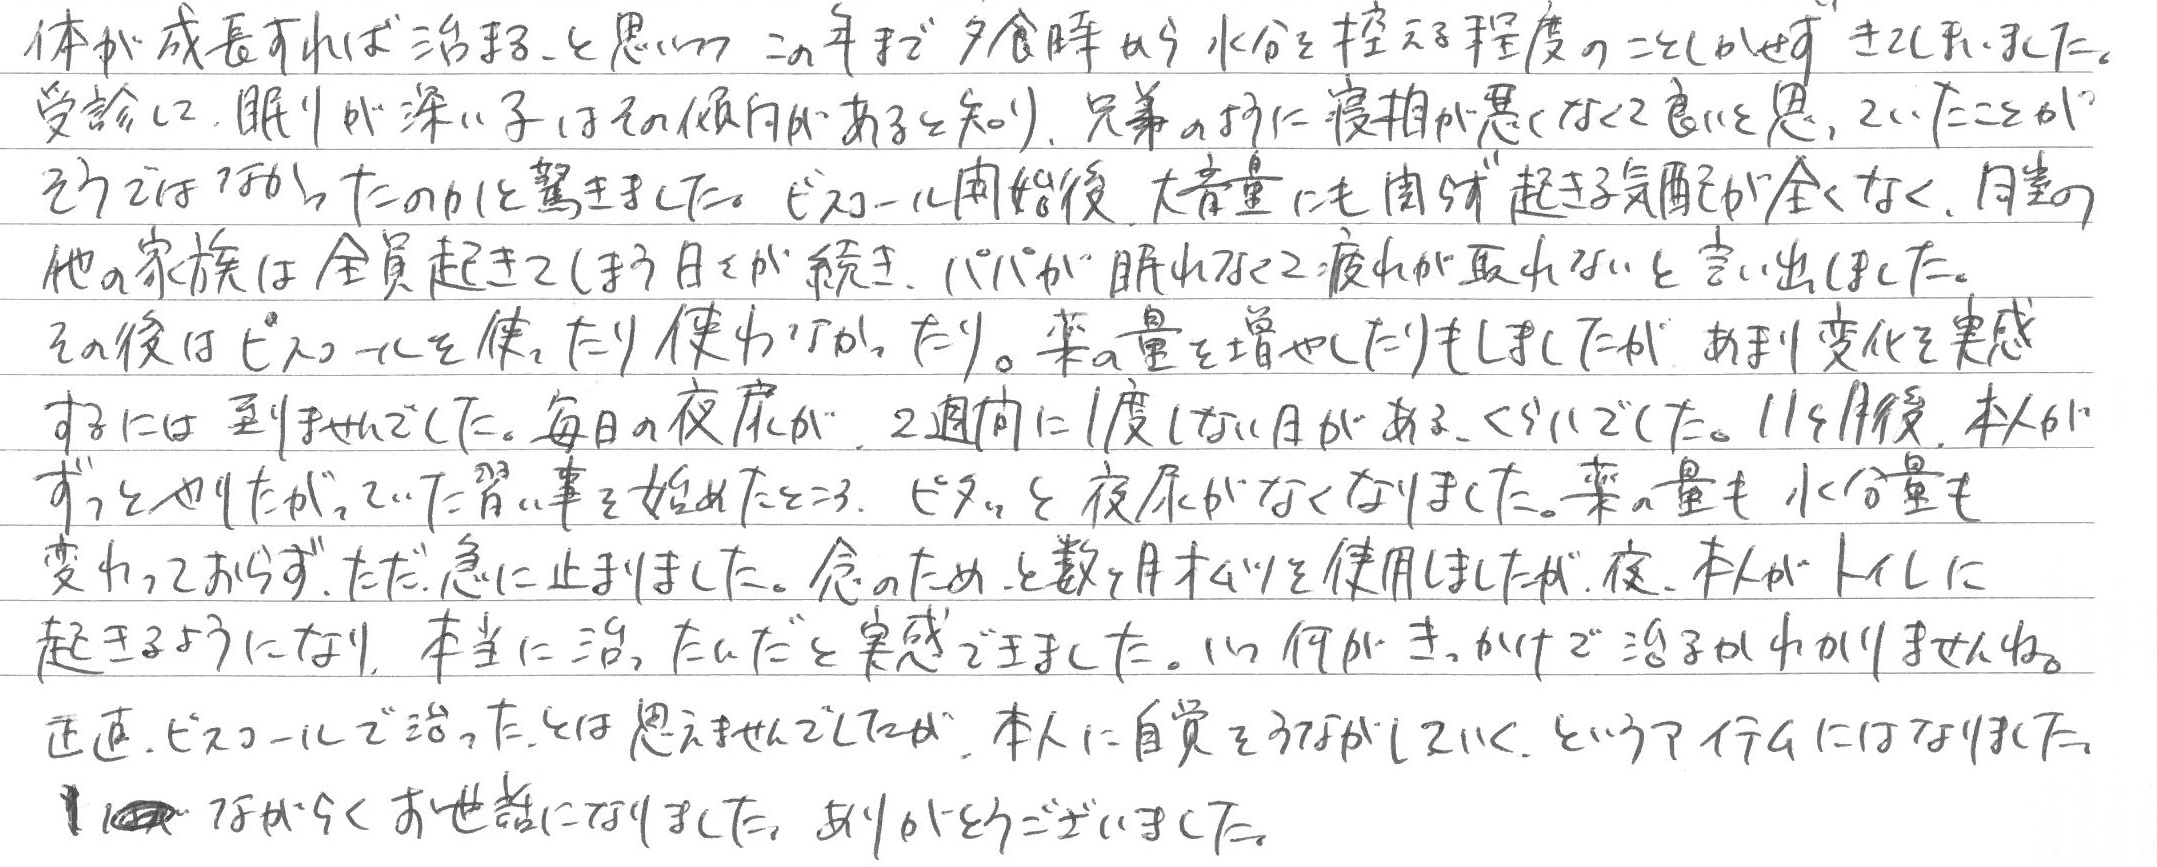 体が成長すれば治まる、と思いつつ この年まで夕食時から水分を控える程度のことしかせずきてしまいました。
受診して、眠りが深い子はその傾向があると知り、兄弟のように寝相が悪くなくて良いと思っていたことが
そうではなかったのかと驚きました。ピスコール開始後、大音量にも関らず起きる気配が全くなく、同室の
他の家族は全員起きてしまう日々が続き、パパが眠れなくて疲れが取れないと言い出しました。
その後はピスコールを使ったり使わなかったり。薬の量を増やしたりもしましたが、あまり変化を実感
するには至りませんでした。毎日の夜尿が、2週間に1度しない日がある、くらいでした。11ヶ月後、本人が
ずっとやりたがっていた習い事を始めたところ、ピタッと夜尿がなくなりました。薬の量も水分量も
変わっておらず、ただ、急に止まりました。念のため、と数ヶ月オムツを使用しましたが、夜、本人がトイレに
起きるようになり、本当に治ったんだと実感できました。いつ何がきっかけで治るかわかりませんね。
正直、ピスコールで治った、とは思えませんでしたが、本人に自覚をうながしていく、というアイテムにはなりました。
ながらくお世話になりました。ありがとうございました。